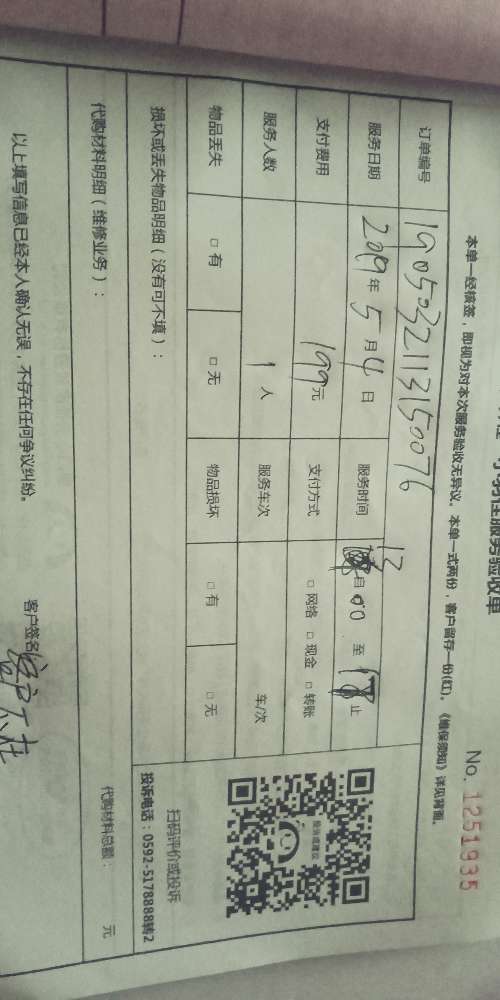 服务验收单
No. 1251935
本单一经核签，即视为对本次服务验收无异议。本单一式两份，客户留存一份(红)。《维保须知》详见背面。
订单编号 1905032113150076
服务日期 2019年5月4日 服务时间 13 自 00 至 止
支付费用 199元 支付方式 □ 网络 □ 现金 □ 转账
服务人数 1 人 服务车次 车/次
物品丢失 □ 有 □ 无 物品损坏 □ 有 □ 无
投诉或建议
扫码评价或投诉
投诉电话：0592-5178888转2
损坏或丢失物品明细（没有可不填）：
代购材料明细（维修业务）：
代购材料总额： 元
以上填写信息已经本人确认无误，不存在任何争议纠纷。
客户签名